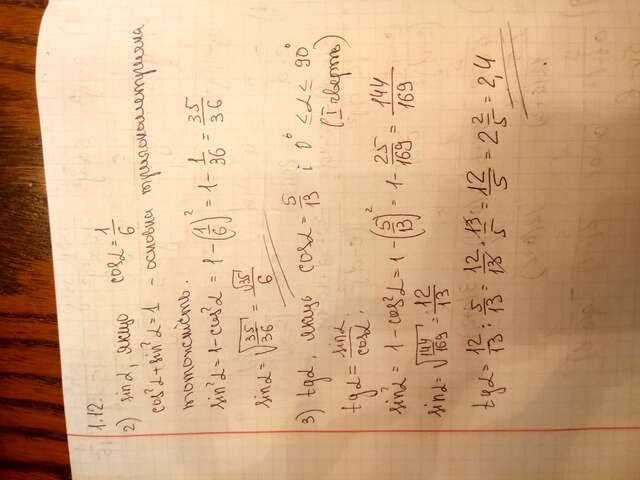 1.12.
2) sinα, якщо cosα = 1/6
cos²α + sin²α = 1 - основна тригонометрична
тотожність.
sin²α = 1 - cos²α = 1 - (1/6)² = 1 - 1/36 = 35/36
sinα = √(35/36) = √35/6
3) tgα, якщо cosα = 5/13 і 0° ≤ α ≤ 90°
(I чверть)
tgα = sinα/cosα.
sin²α = 1 - cos²α = 1 - (5/13)² = 1 - 25/169 = 144/169
sinα = √(144/169) = 12/13
tgα = 12/13 : 5/13 = 12/13 · 13/5 = 12/5 = 2 2/5 = 2,4